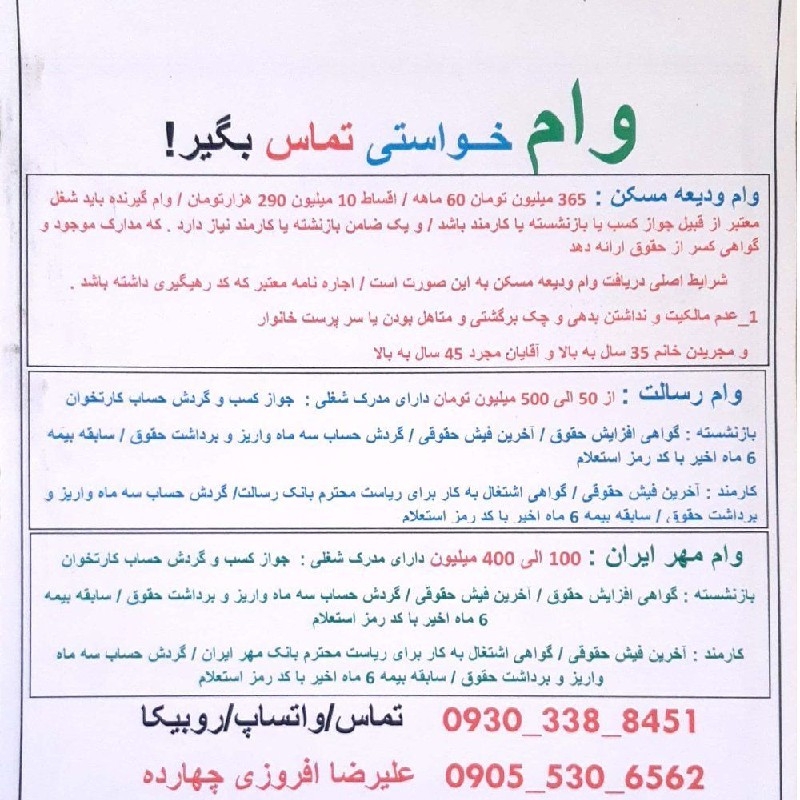 وام خواستی تماس بگیر!
وام ودیعه مسکن : 365 میلیون تومان 60 ماهه / اقساط 10 میلیون 290 هزارتومان / وام گیرنده باید شغل
معتبر از قبیل جواز کسب یا بازنشسته یا کارمند باشد / و یک ضامن بازنشته یا کارمند نیاز دارد . که مدارک موجود و
گواهی کسر از حقوق ارائه دهد
شرایط اصلی دریافت وام ودیعه مسکن به این صورت است / اجاره نامه معتبر که کد رهیگیری داشته باشد .
1_عدم مالکیت و نداشتن بدهی و چک برگشتی و متاهل بودن یا سر پرست خانوار
و مجریدن خانم 35 سال به بالا و آقایان مجرد 45 سال به بالا
وام رسالت : از 50 الی 500 میلیون تومان دارای مدرک شغلی : جواز کسب و گردش حساب کارتخوان
بازنشسته : گواهی افزایش حقوق / آخرین فیش حقوقی / گردش حساب سه ماه واریز و برداشت حقوق / سابقه بیمه
6 ماه اخیر با کد رمز استعلام
کارمند : آخرین فیش حقوقی / گواهی اشتغال به کار برای ریاست محترم بانک رسالت/ گردش حساب سه ماه واریز و
برداشت حقوق / سابقه بیمه 6 ماه اخیر با کد رمز استعلام
وام مهر ایران : 100 الی 400 میلیون دارای مدرک شغلی : جواز کسب و گردش حساب کارتخوان
بازنشسته : گواهی افزایش حقوق / آخرین فیش حقوقی / گردش حساب سه ماه واریز و برداشت حقوق / سابقه بیمه
6 ماه اخیر با کد رمز استعلام
کارمند : آخرین فیش حقوقی / گواهی اشتغال به کار برای ریاست محترم بانک مهر ایران / گردش حساب سه ماه
واریز و برداشت حقوق / سابقه بیمه 6 ماه اخیر با کد رمز استعلام
0930_338_8451 تماس/واتساپ/روبیکا
0905_530_6562 علیرضا افروزی چهارده